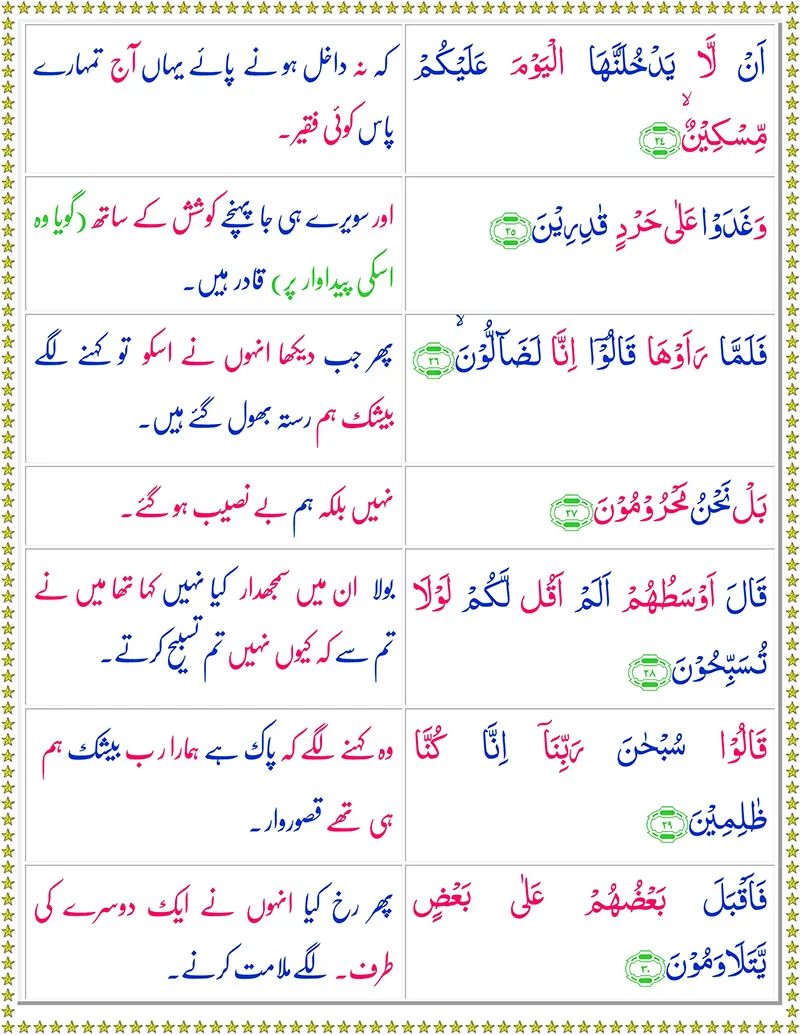 اَنْ لَّا يَدْخُلَنَّهَا الْيَوْمَ عَلَيْكُمْ
مِّسْكِيْنٌۙ ﴿۲۴﴾
کہ نہ داخل ہونے پائے یہاں آج تمہارے
پاس کوئی فقیر۔
وَغَدَوْا عَلٰى حَرْدٍ قٰدِرِيْنَ ﴿۲۵﴾
اور سویرے ہی جا پہنچے کوشش کے ساتھ (گویا وہ
اسکی پیداوار پر) قادر ہیں۔
فَلَمَّا رَاَوْهَا قَالُوْٓا اِنَّا لَضَآلُّوْنَۙ ﴿۲۶﴾
پھر جب دیکھا انہوں نے اسکو تو کہنے لگے
بیشک ہم رستہ بھول گئے ہیں۔
بَلْ نَحْنُ مَحْرُوْمُوْنَ ﴿۲۷﴾
نہیں بلکہ ہم بے نصیب ہوگئے۔
قَالَ اَوْسَطُهُمْ اَلَمْ اَقُل لَّكُمْ لَوْلَا
تُسَبِّحُوْنَ ﴿۲۸﴾
بولا ان میں سمجھدار کیا نہیں کہا تھا میں نے
تم سے کہ کیوں نہیں تم تسبیح کرتے۔
قَالُوْا سُبْحٰنَ رَبِّنَآ اِنَّا كُنَّا
ظٰلِمِيْنَ ﴿۲۹﴾
وہ کہنے لگے کہ پاک ہے ہمارا رب بیشک ہم
ہی تھے قصوروار۔
فَاَقْبَلَ بَعْضُهُمْ عَلٰى بَعْضٍ
يَّتَلَاوَمُوْنَ ﴿۳۰﴾
پھر رخ کیا انہوں نے ایک دوسرے کی
طرف۔ لگے ملامت کرنے۔